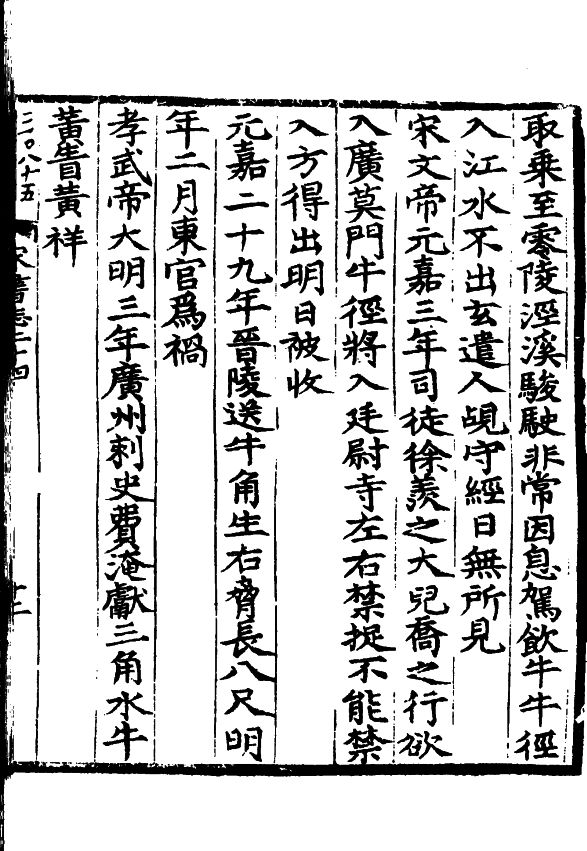 取乗至零陵涇溪駿駛非常因息駕飲牛牛徑
入江水不出玄遣人覘守經日無所見
宋文帝元嘉三年司徒徐羨之大兒喬之行欲
入廣莫門牛徑將入廷尉寺左右禁捉不能禁
入方得出明日被收
元嘉二十九年晉陵送牛角生右脅長八尺明
年二月東宮爲禍
孝武帝大明三年廣州刺史費淹獻三角水牛
黃眚黃祥
二百八十五
宋書志二十四
十二